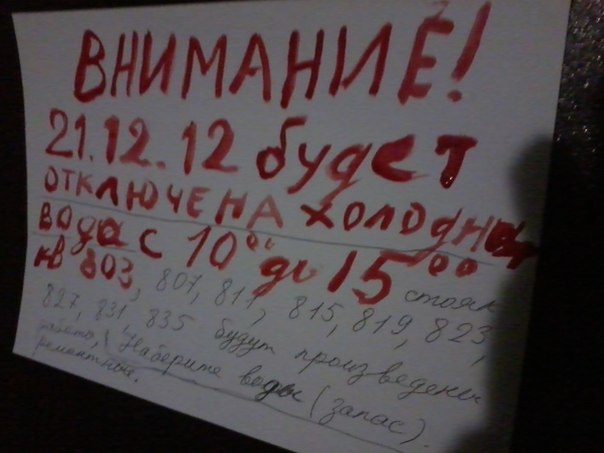 ВНИМАНИЕ!
21.12.12 будет
отключена холодная
вода с 10⁰⁰ до 15⁰⁰ стояк
кв 803, 807, 811, 815, 819, 823,
827, 831, 835 будут произведены
работы, Наберите воды (запас).
ремонтные.